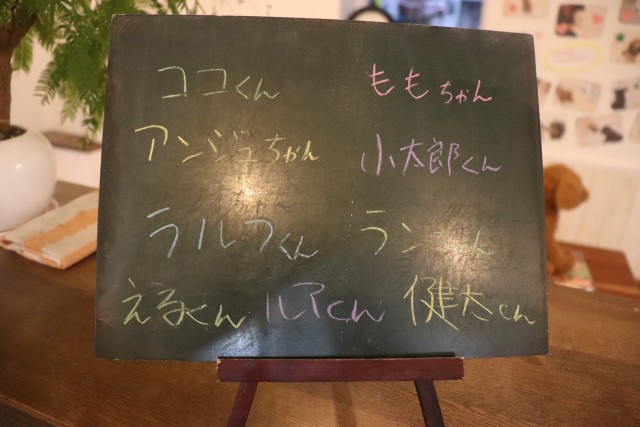 ココくん ももちゃん
アンジュちゃん 小太郎くん
ラルフくん ランちゃん
えるくん ルアくん 健太くん